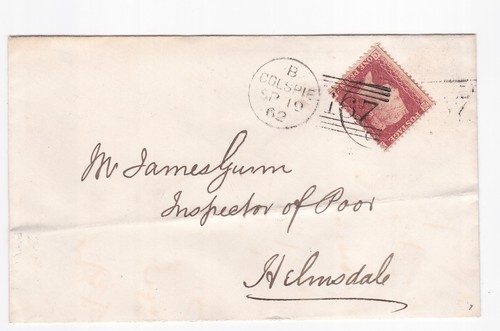 B
GOLSPIE
SP 19
62
167
POSTAGE
Mr James Gunn
Inspector of Poor
Helmsdale